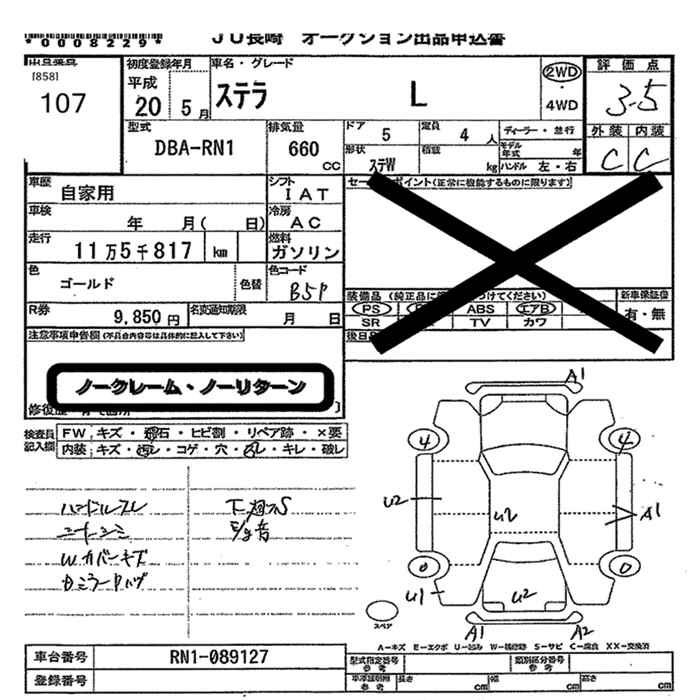 *0008229*
JU長崎 オークション出品申込書
[858]
107
初度登録年月
平成
20 5月
車名・グレード
ステラ L
2WD
・
4WD
評価点
3.5
外装 内装
C C
型式
DBA-RN1
排気量
660
CC
ドア 5
定員 4人
ディーラー・並行
形状
ステW
積載
kg
モデル年式 年
ハンドル 左・右
車歴
自家用
シフト
IAT
車検
年 月( 日)
冷房
AC
走行
11万5千817 km
燃料
ガソリン
色
ゴールド
色替
色コード
B5P
R券
9,850円
名変通知期限
月 日
セー ポイント(正常に機能するものに限ります)
装備品 (純正品に つけてください)
PS ABS エアB
SR TV カワ
新車保証書
有・無
後日
注意事項申告欄 (不具合内容等は具体的に記入して下さい)
ノークレーム・ノーリターン
検査員記入欄
FW キズ・飛石・ヒビ割・リペア跡・×要
内装 キズ・汚レ・コゲ・穴・スレ・キレ・破レ
ハンドルスレ
シートシミ
Wカバーキズ
下廻りS
A1
4 4
U2
U2
A1
0 0
U1
U2
A1 A2
スペア
A-キズ E-エクボ U-凹み W-補修跡 S-サビ C-腐食 XX-交換済
車台番号
RN1-089127
登録番号
型式指定番号
参考
類別区分番号
参考
参考
長さ cm
幅 cm
高さ cm